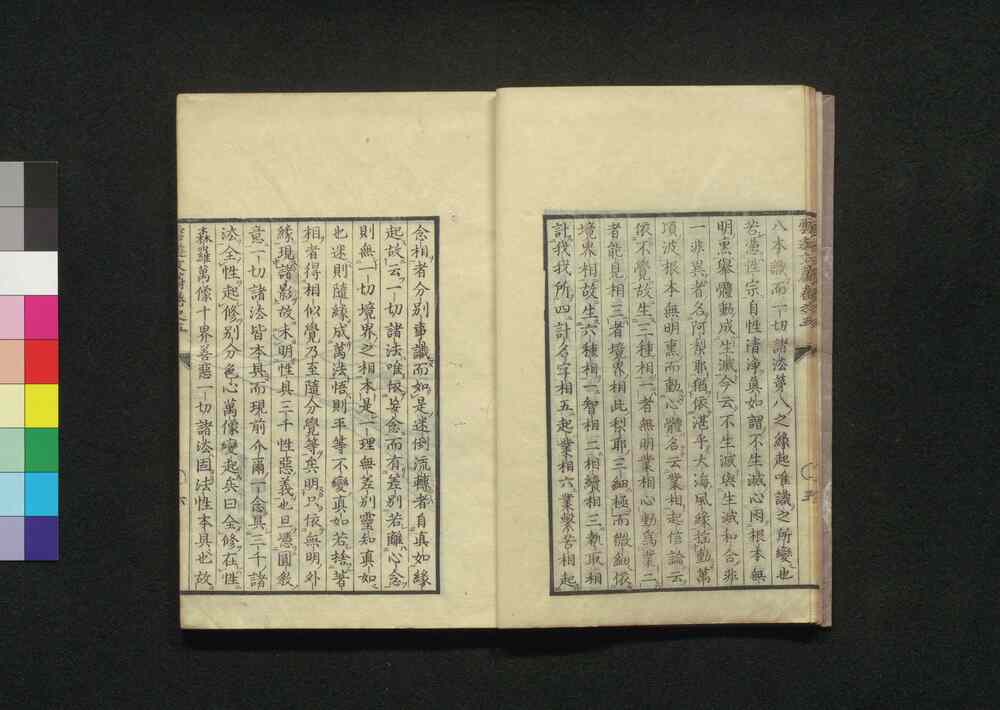 八本識而一切諸法第八之緣起唯識之所變也
若憑性宗自性清淨真如謂不生滅心因根本無
明熏擧體動成生滅今云不生滅與生滅和合非
一非異者名阿梨耶猶依湛乎大海風緣擊動萬
頃波根本無明熏而動心體名云業相起信論云
依不覺故生三種相一者無明業相心動爲業二
者能見相三者境界相此梨耶三細極而微細依
境界相故生六種相一智相二相續相三執取相
計我我所四計名字相五起業相六業繫苦相起
念相者分別事識而如是迷倒流轉者自真如緣
起故云一切諸法唯依妄念而有差別若離心念
則無一切境界之相本是一理無差別靈知真如
也迷則隨緣成萬法悟則平等不變真如若捨著
相者得相似覺乃至隨分覺等矣明只依無明外
緣現諸影故未明性具三千性惡義也旦憑圓教
意一切諸法皆本具而現前介爾一念具三千諸
法全性起修別分色心萬像變起矣曰全修在性
森羅萬像十界善惡一切諸法固法性本具也故